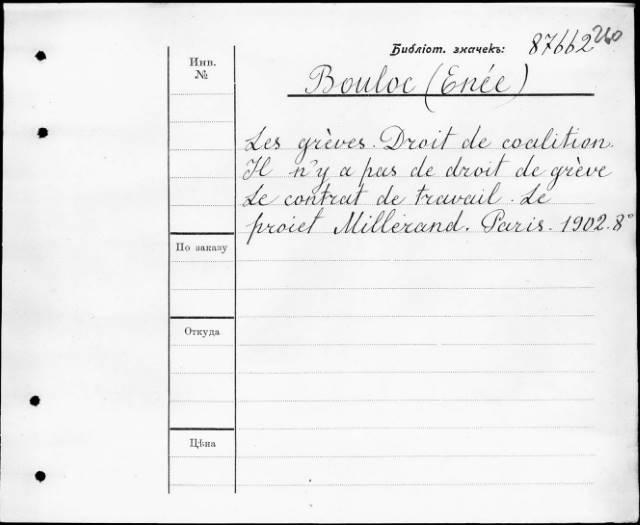 Библіот. значекъ: 87662
Инв.
№
Bouloc (Enée)
Les grèves. Droit de coalition.
Il n'y a pas de droit de grève
Le contrat de travail. Le
projet Millerand. Paris. 1902. 8°
По заказу
Откуда
Цѣна